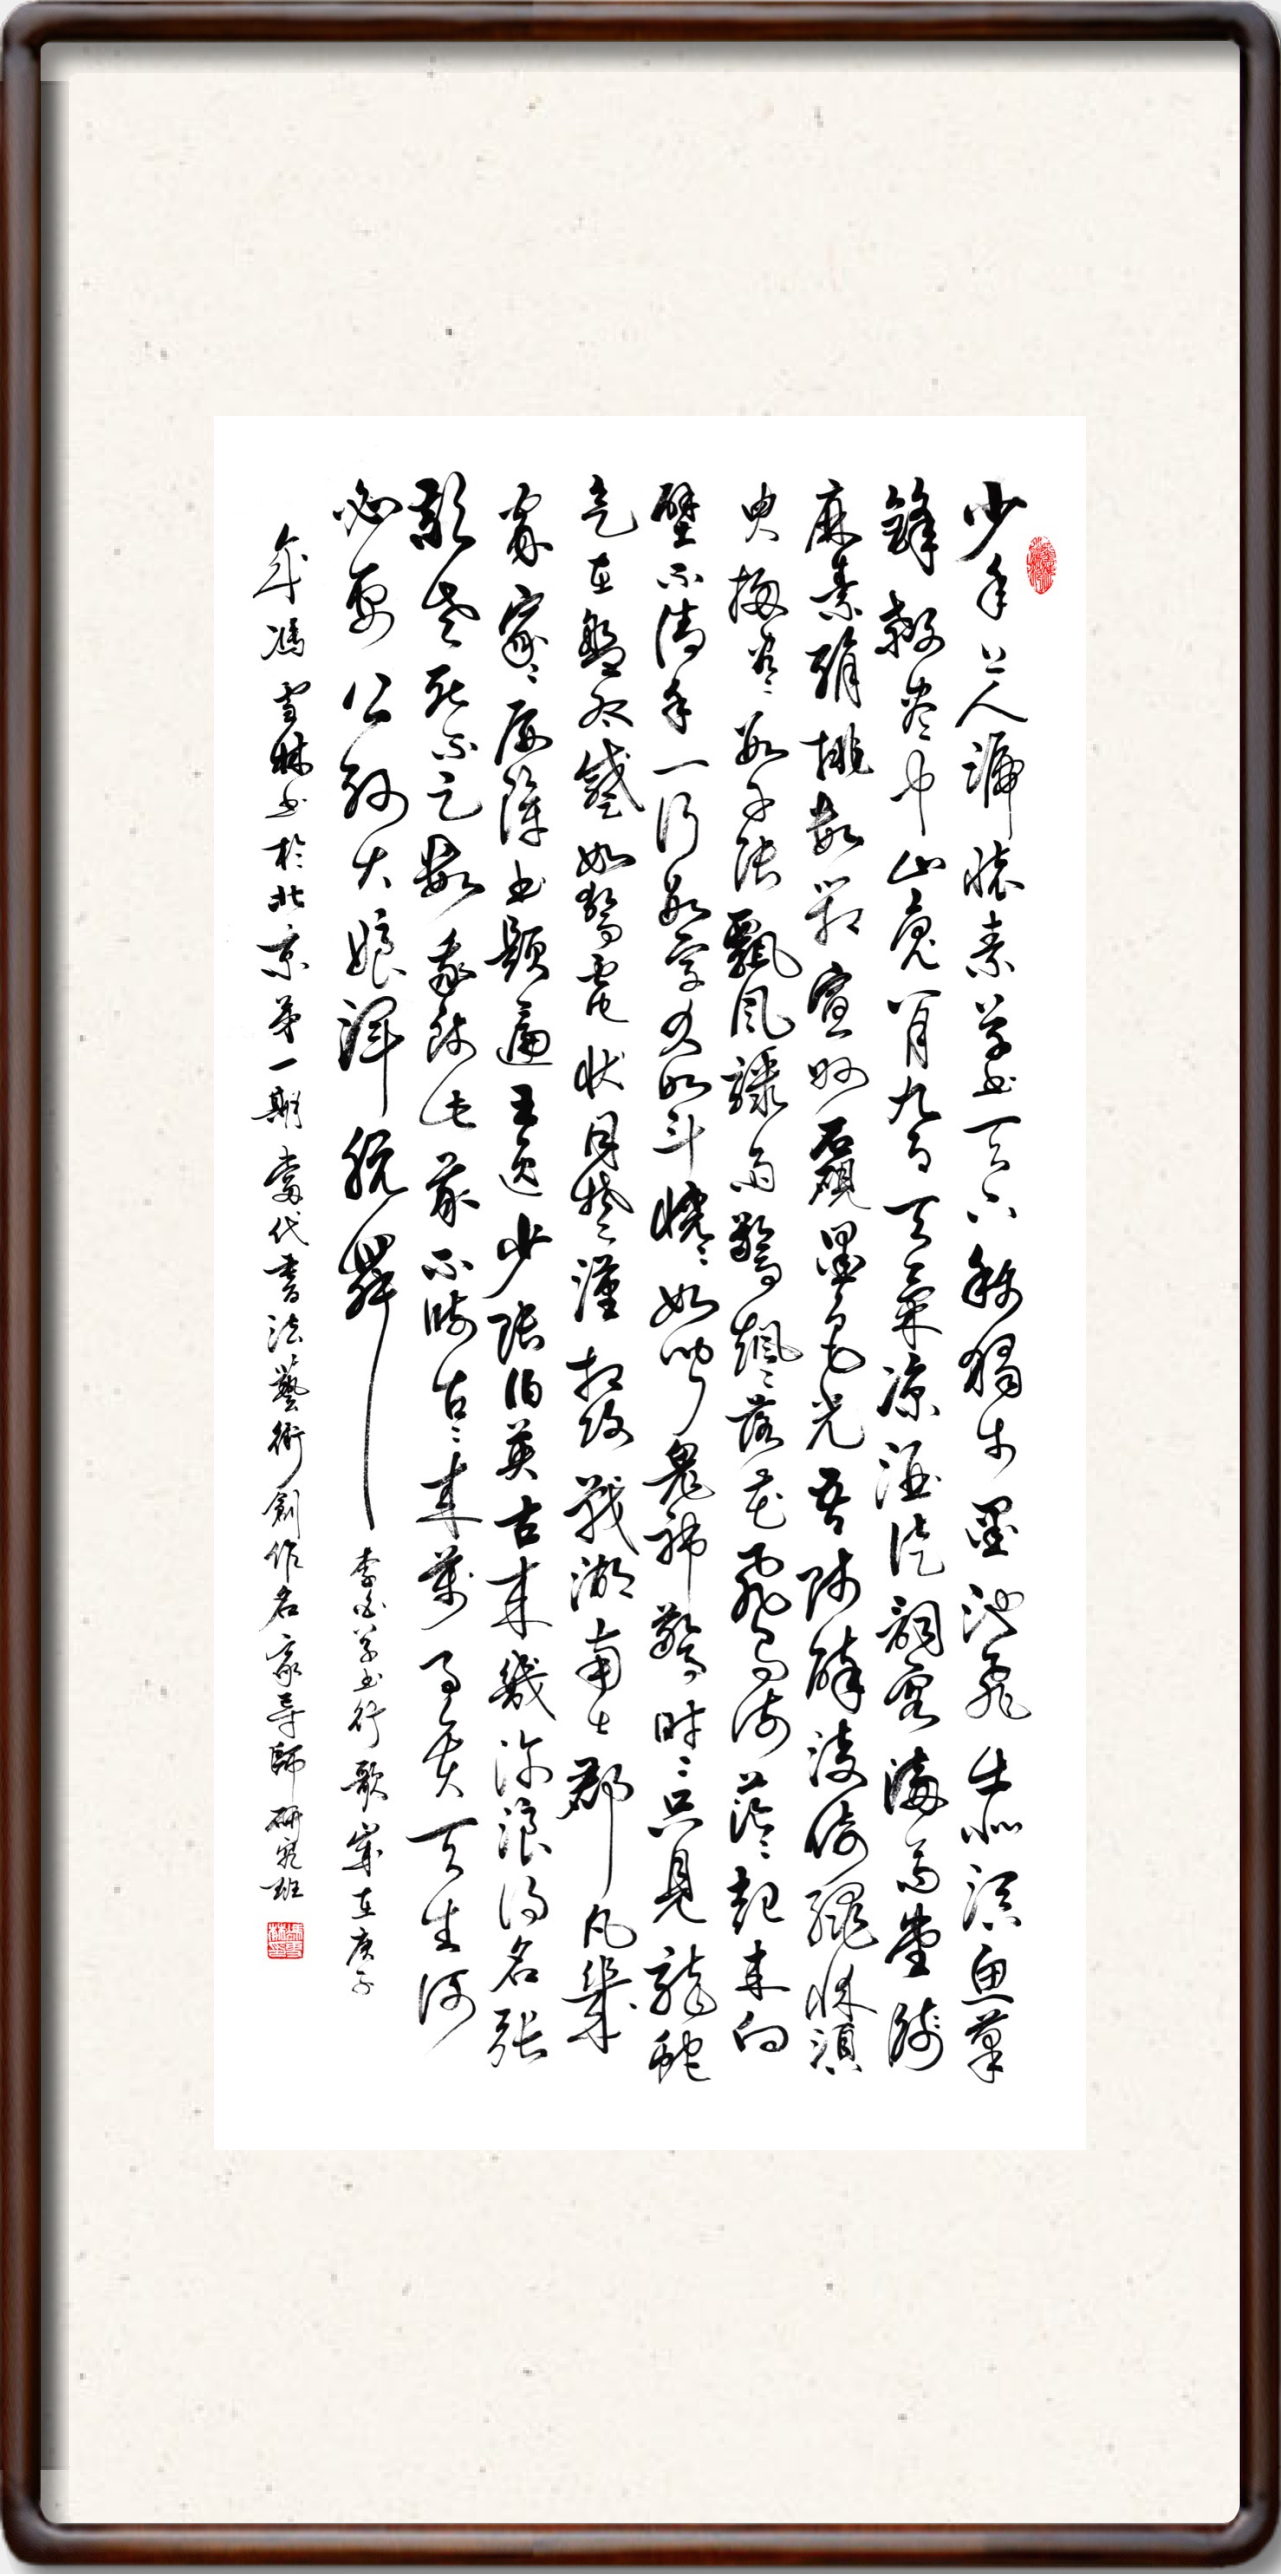 少年上人號懷素草書天下稱獨步墨池飛出北溟魚筆
鋒殺盡中山兔八月九月天氣涼酒徒詞客滿高堂牋
麻素絹排數箱宣州石硯墨色光吾師醉後倚繩床須
臾掃盡數千張飄風驟雨驚颯々落花飛雪何茫々起來向
壁不停手一行數字大如斗怳々如聞鬼神驚時々只見龍蛇
走左盤右蹙如驚電狀同楚漢相攻戰湖南七郡凡幾
家家々屏障書題遍王逸少張伯英古來幾許浪得名張
顛老死不足數我師此義不師古々來萬事貴天生何
必要公孫大娘渾脫舞 李白草書行歌歲在庚子
年馮雪林書於北京第一期當代書法藝術創作名家導師研究班